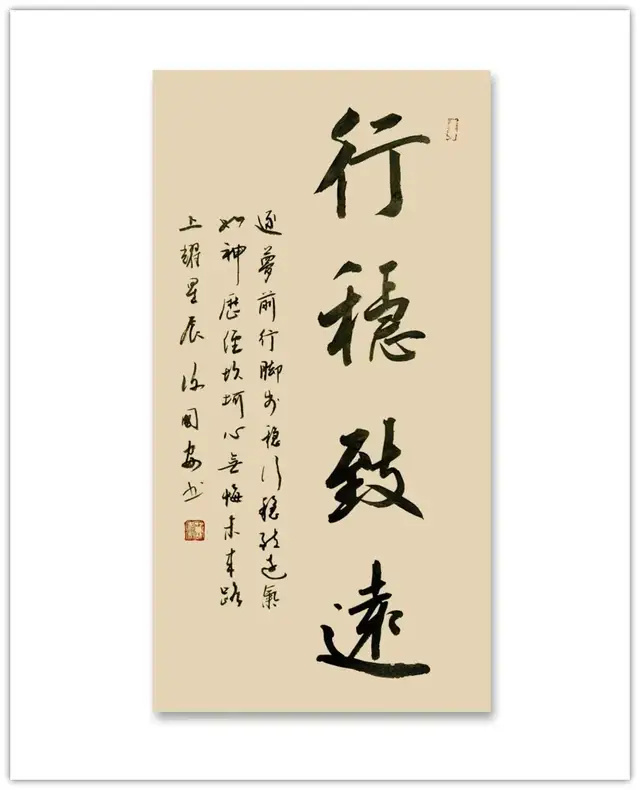 行穩致遠
逐夢前行脚步穩行穩致遠氣
如神歷經坎坷心無悔未來路
上耀星辰 國安书